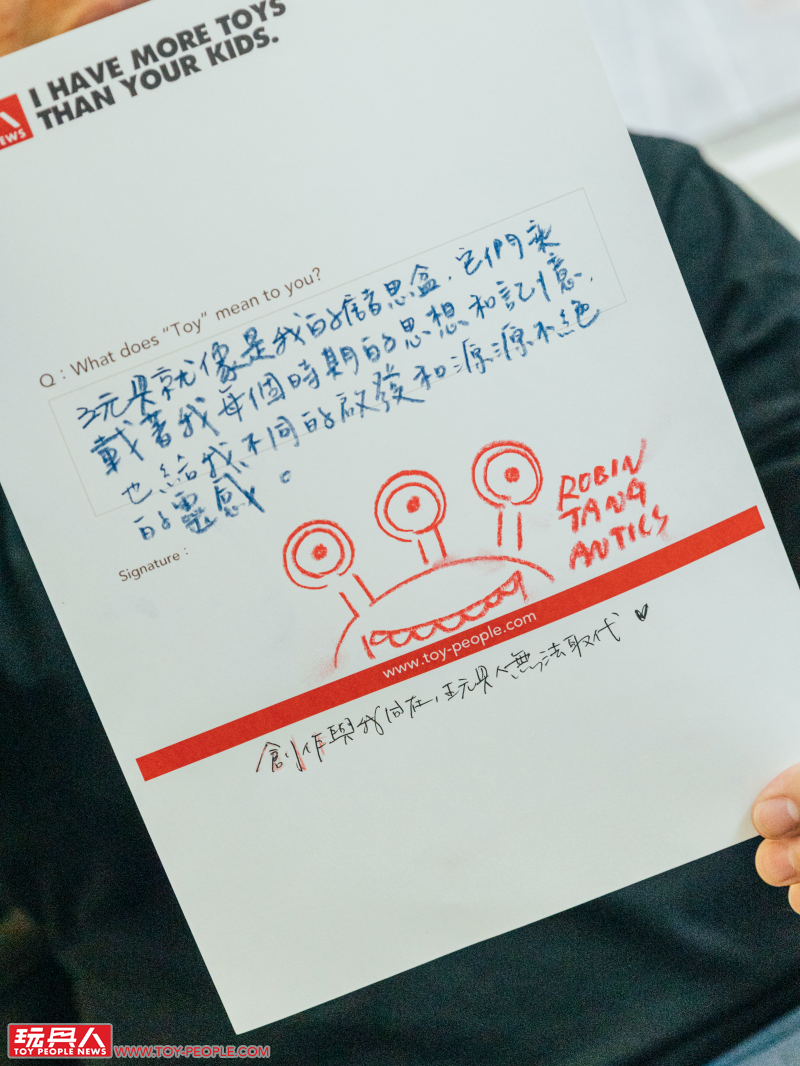 I HAVE MORE TOYS
THAN YOUR KIDS.
NEWS
Q : What does "Toy" mean to you?
玩具就像是我的意思盒,它們乘
載著我每個時期的思想和記憶,
也給我不同的啟發和源源不絕
的靈感。
Signature :
ROBIN
TANG
ANTICS
www.toy-people.com
創作與我同在,玩具人無法取代 ♥
玩具人
TOY PEOPLE NEWS
WWW.TOY-PEOPLE.COM